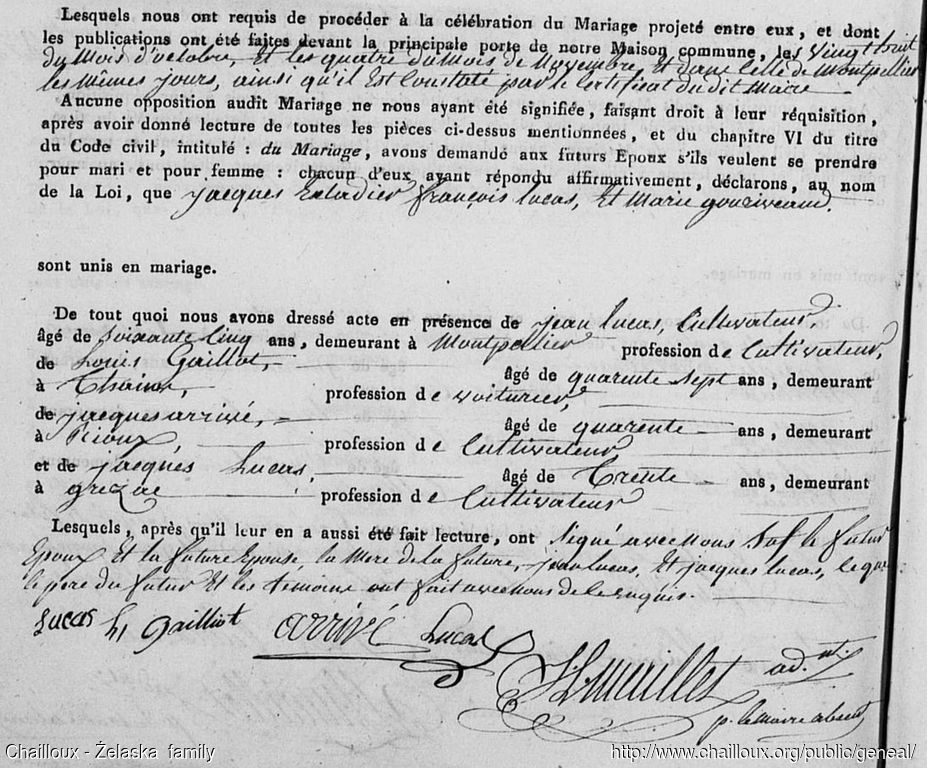 Lesquels nous ont requis de procéder à la célébration du Mariage projeté entre eux, et dont
les publications ont été faites devant la principale porte de notre Maison commune, les vingt huit
du Mois d'octobre, et les quatre du Mois de Novembre, Et dans Celle de Montpellier
les mêmes jours, ainsi qu'il Est Constaté par le Certificat du dit Maire
Aucune opposition audit Mariage ne nous ayant été signifiée, faisant droit à leur réquisition,
après avoir donné lecture de toutes les pièces ci-dessus mentionnées, et du chapitre VI du titre
du Code civil, intitulé : du Mariage, avons demandé aux futurs Epoux s'ils veulent se prendre
pour mari et pour femme : chacun d'eux ayant répondu affirmativement, déclarons, au nom
de la Loi, que jacques françois lucas, Et Marie
sont unis en mariage.
De tout quoi nous avons dressé acte en présence de jean lucas, Cultivateur
âgé de soixante Cinq ans, demeurant à Montpellier profession de Cultivateur,
de Louis Gaillot, âgé de quarente sept ans, demeurant
à Thaims, profession de voiturier,
de jacques arrivé, âgé de quarente ans, demeurant
à Rioux, profession de Cultivateur
et de jacques Lucas, âgé de Trente ans, demeurant
à grezac profession de Cultivateur
Lesquels, après qu'il leur en a aussi été fait lecture, ont signé avec nous Sof le futur
Epoux Et la future Epouse, la Mere de la future, jean lucas, Et jacques lucas,
le pere du futur Et les temoins ont fait avec nous de le
Lucas Gailliot arrivé Lucas
ad.nt
p. le maire absent
Chailloux - Żelaska family http://www.chailloux.org/public/geneal/